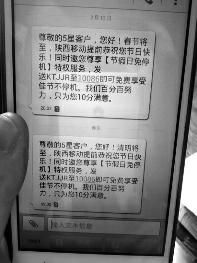 2月15日
尊敬的5星客户，您好！春节将
至，陕西移动提前恭祝您节日快
乐！同时邀您尊享【节假日免停
机】特权服务，发
送KTJJR至10086即可免费享受
佳节不停机。我们百分百努
力，只为您10分满意。
尊敬的5星客户，您好！清明将
至，陕西移动提前恭祝您节日快
乐！同时邀您尊享【节假日免停
机】特权服务，发
送KTJJR至10086即可免费享受
佳节不停机。我们百分百努
力，只为您10分满意。